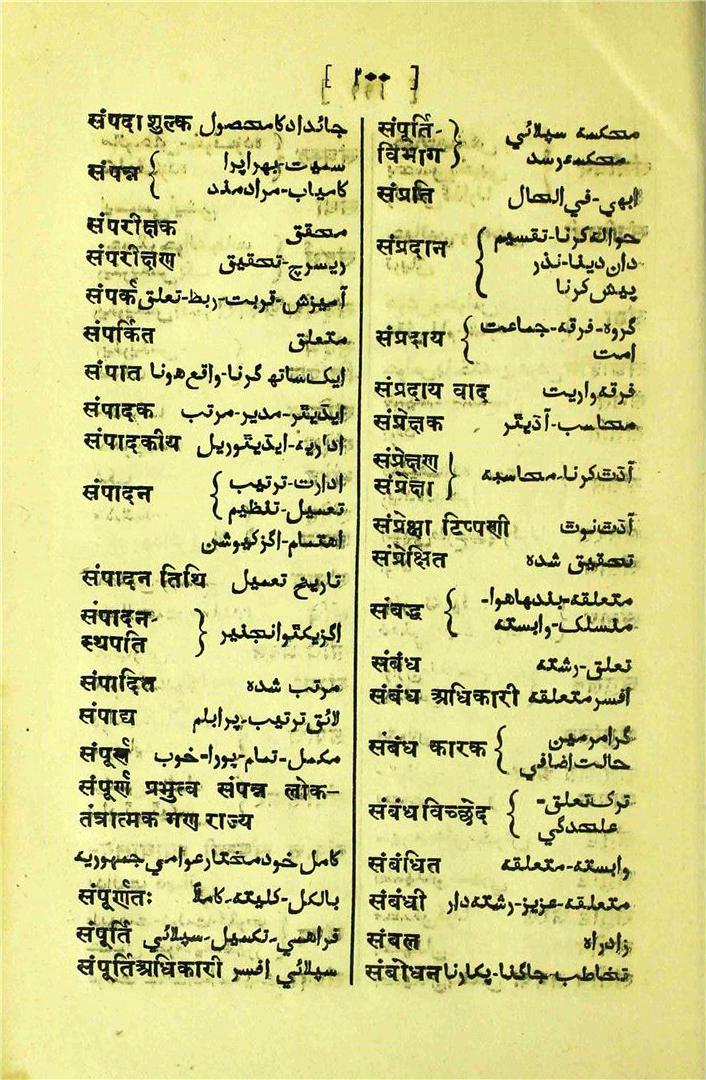 [ ۲۰۰ ]
संपदा शुल्क جائداد کا محصول
संपन्न { سمیت-بھراپرا
کامیاب-مراد مند
संपरीक्षक محقق
संपरीक्षण ریسرچ-تحقیق
संपर्क آمیزش-قربت-ربط-تعلق
संपर्कित متعلق
संपात ایک ساتھ گرنا-واقع ہونا
संपादक ایڈیٹر-مدیر-مرتب
संपादकीय اداریہ-ایڈیٹوریل
संपादन { ادارت-ترتیب
تعمیل-تنظیم
اهتمام-اگزکیوشن
संपादन तिथि تاریخ تعمیل
संपादन-
स्थपति } اگزیکٹو انجنیر
संपादित مرتب شدہ
संपाद्य لائق ترتیب-پرابلم
संपूर्ण مکمل-تمام-پورا-خوب
संपूर्ण प्रभुत्व संपन्न लोक-
तंत्रात्मक गण राज्य
کامل خود مختار عوامی جمہوریہ
संपूर्णतः بالکل-کلیتہ-کاملاً
संपूर्ति فراهمی-تکمیل-سپلائی
संपूर्तिअधिकारी سپلائی افسر
संपूर्ति-
विभाग } محکمہ سپلائی
محکمہ رسد
संप्रति ابھی-فی الحال
संप्रदान { حوالہ کرنا-تقسیم
دان دینا-نذر
پیش کرنا
संप्रदाय { گروہ-فرقہ-جماعت
امت
संप्रदाय वाद فرقہ واریت
संप्रेक्षक محاسب-آڈیٹر
संप्रेक्षण
संप्रेक्षा } آڈٹ کرنا-محاسبہ
संप्रेक्षा टिप्पणी آڈٹ نوٹ
संप्रेक्षित تحقیق شدہ
संबद्ध { متعلقہ-بندھا ہوا-
منسلک-وابستہ
संबंध تعلق-رشتہ
संबंध अधिकारी افسر متعلقہ
संबंध कारक { گرامر میں
حالت اضافی
संबंध विच्छेद { ترک تعلق-
علحدگی
संबंधित وابستہ-متعلقہ
संबंधी متعلقہ-عزیز-رشتہ دار
संबल زاد راہ
संबोधन تخاطب-جاگنا-پکارنا